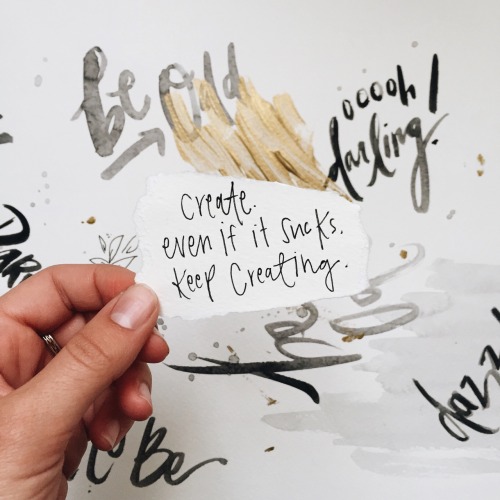 be
ooooh
darling!
create.
even if it sucks.
Keep Creating.
Be